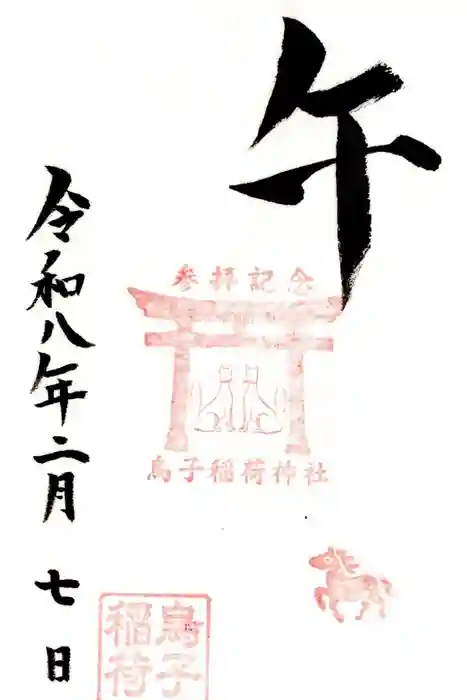 午
参拝記念
烏子稲荷神社
令和八年二月七日
烏子
稲荷